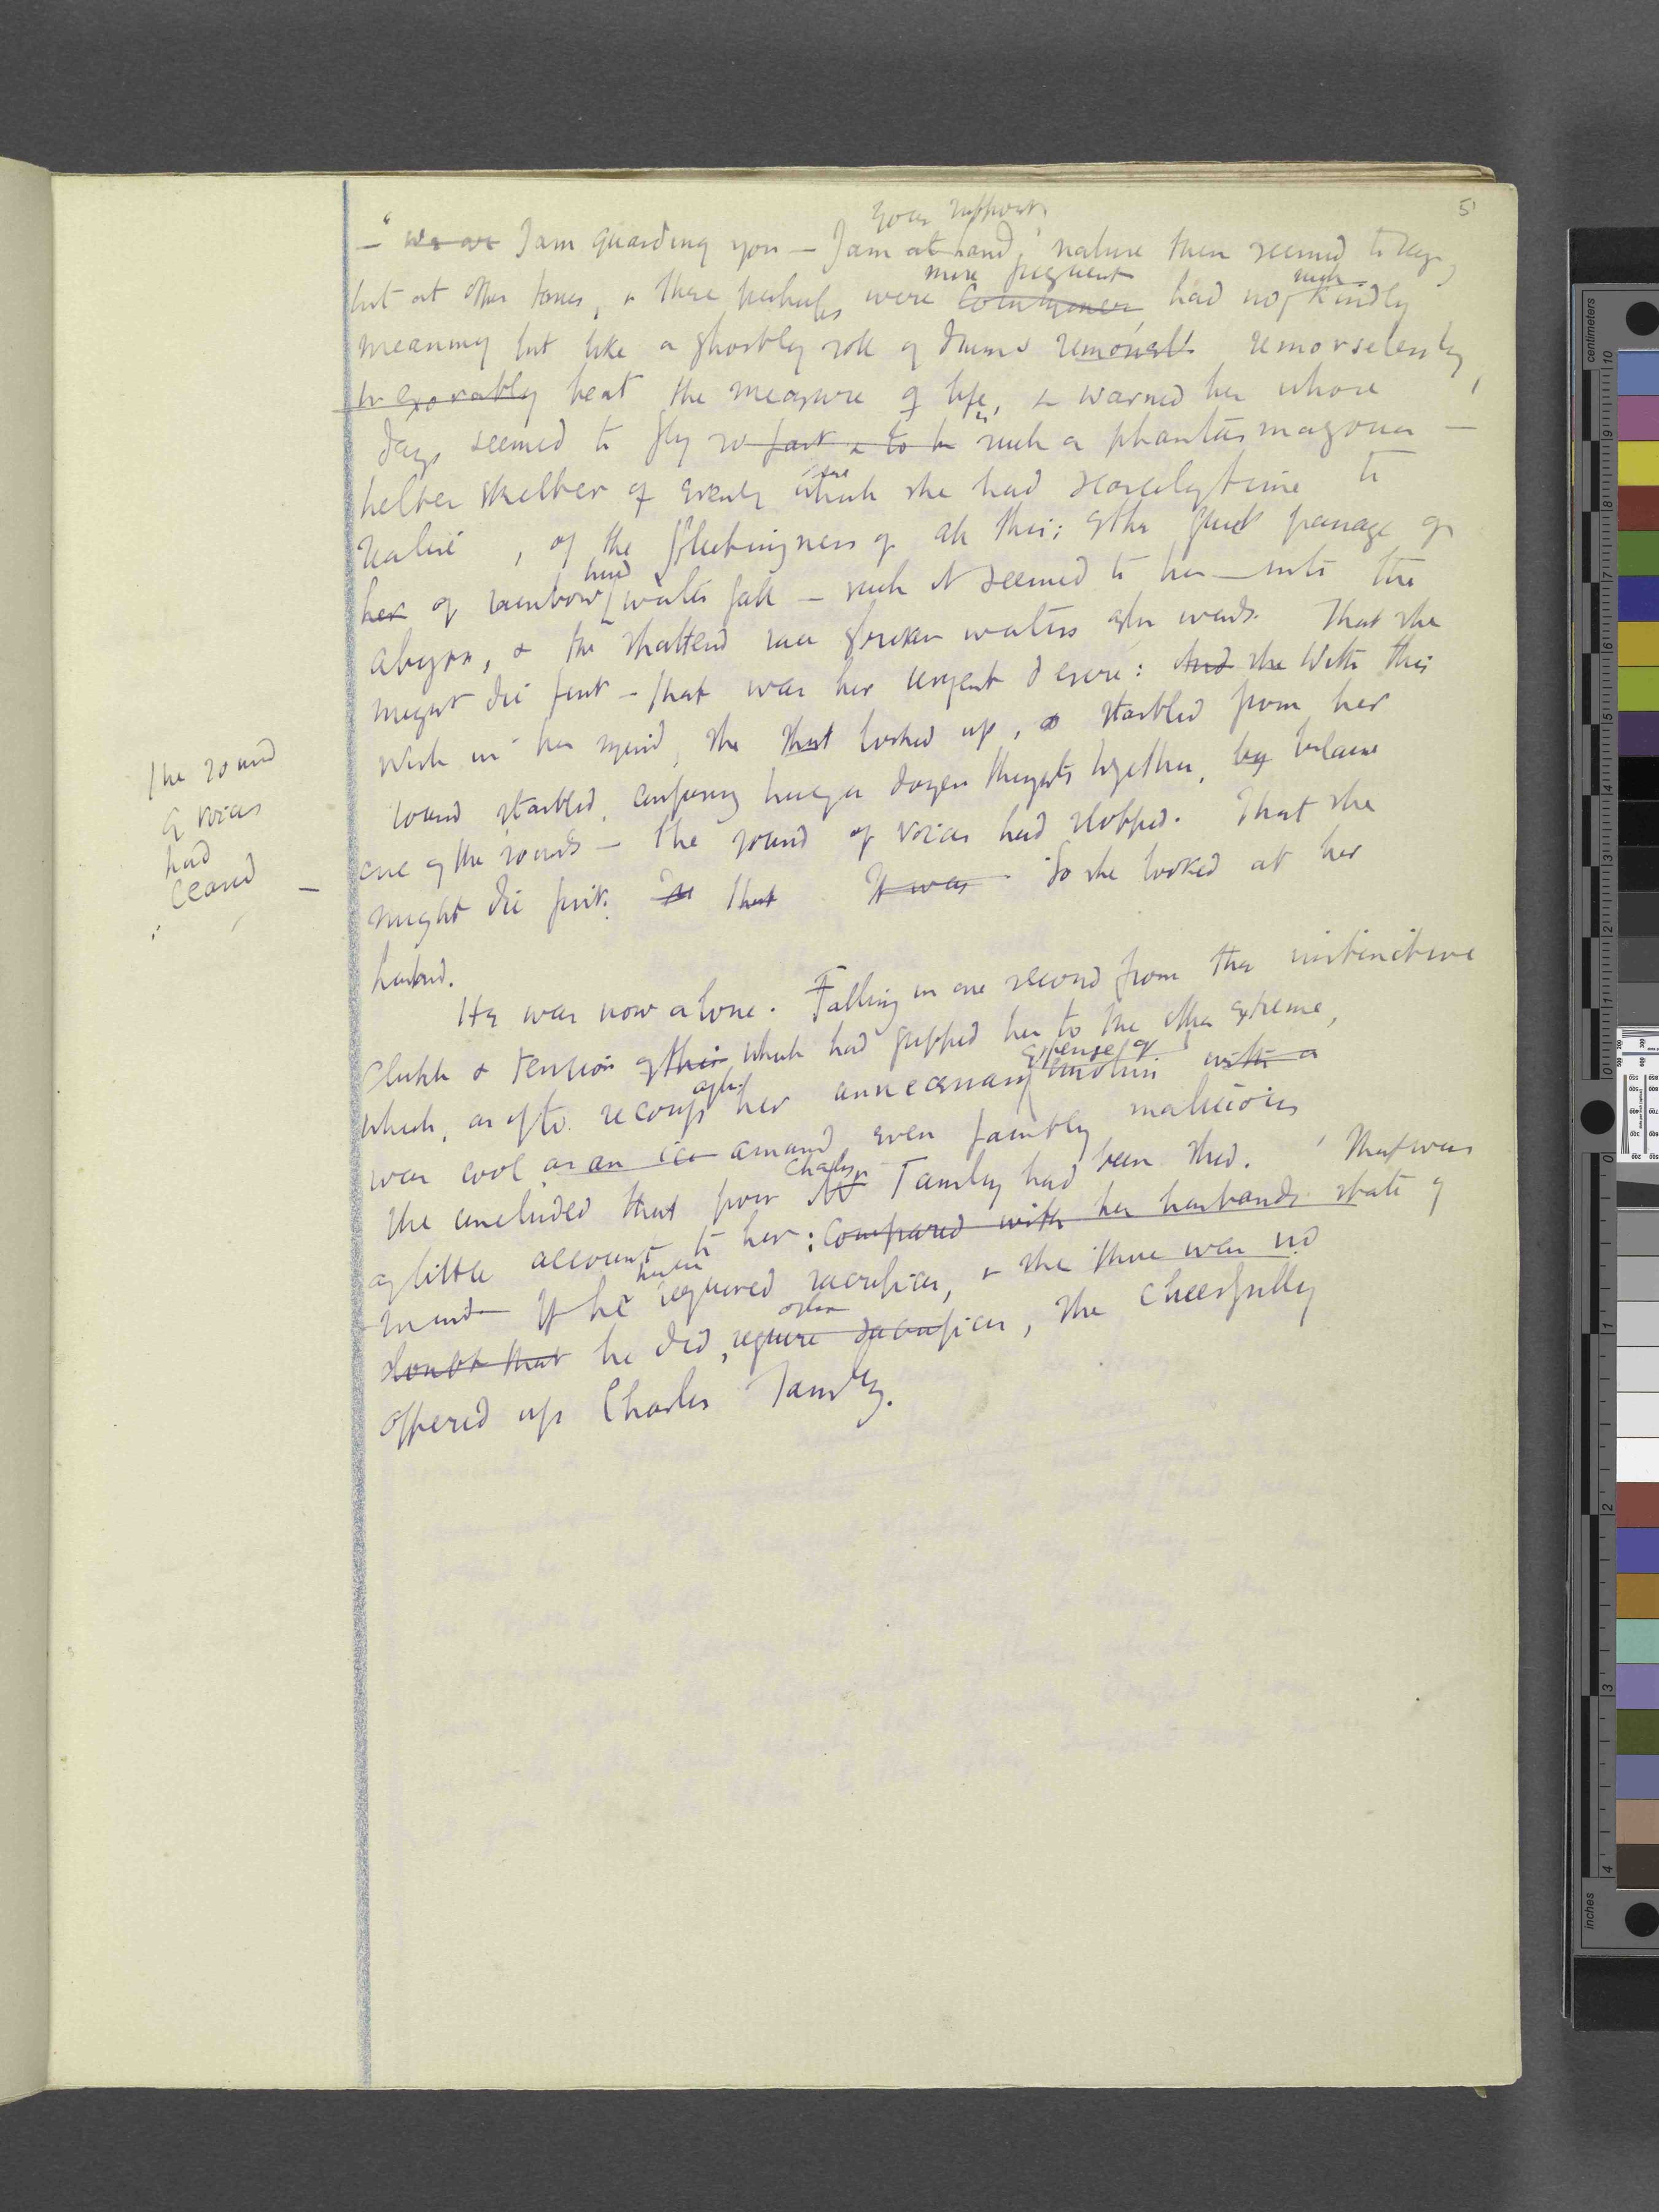 51
your support
— "We are I am guarding you — I am at hand," nature then seemed to say,
more frequent such
but at other times, & these perhaps were commoner, had no kindly
meaning but like a ghostly roll of drums remorsel remorselessly,
inexorably beat the measure of life, & warned her whose
in
days seemed to fly so fast & to be such a phantasmagoria —
helter skelter of events which she had scarcely time to
realise, of the fleetingness of all this: of the passage of
her of rainbow water fall — such it seemed to her — into the
abyss, & the shattered broken waters. That she
might die first — that was her urgent desire: And she With this
wish in her mind, she that looked up, & startled from her
sound startled, confusing half a dozen thoughts together, by because
The sound
of voices
had
ceased —
one of the sounds — the sound of voices had stopped. That she
might die first: that It was So she looked at her
husband.
He was now alone. Falling in one second from the instinctive
clutch & tension of this which had gripped her to the other extreme,
expense of
which, as if to recoup her unnecessary emotion with a
was cool, as an ice amused even faintly malicious
Charles
she concluded that poor Mr Tansley had been shed. That was
of little account to her: compared with her husbands state of
mind If he required sacrifices, & she there was no
often
doubt that he did, require sacrifices, she cheerfully
offered up Charles Tansley.